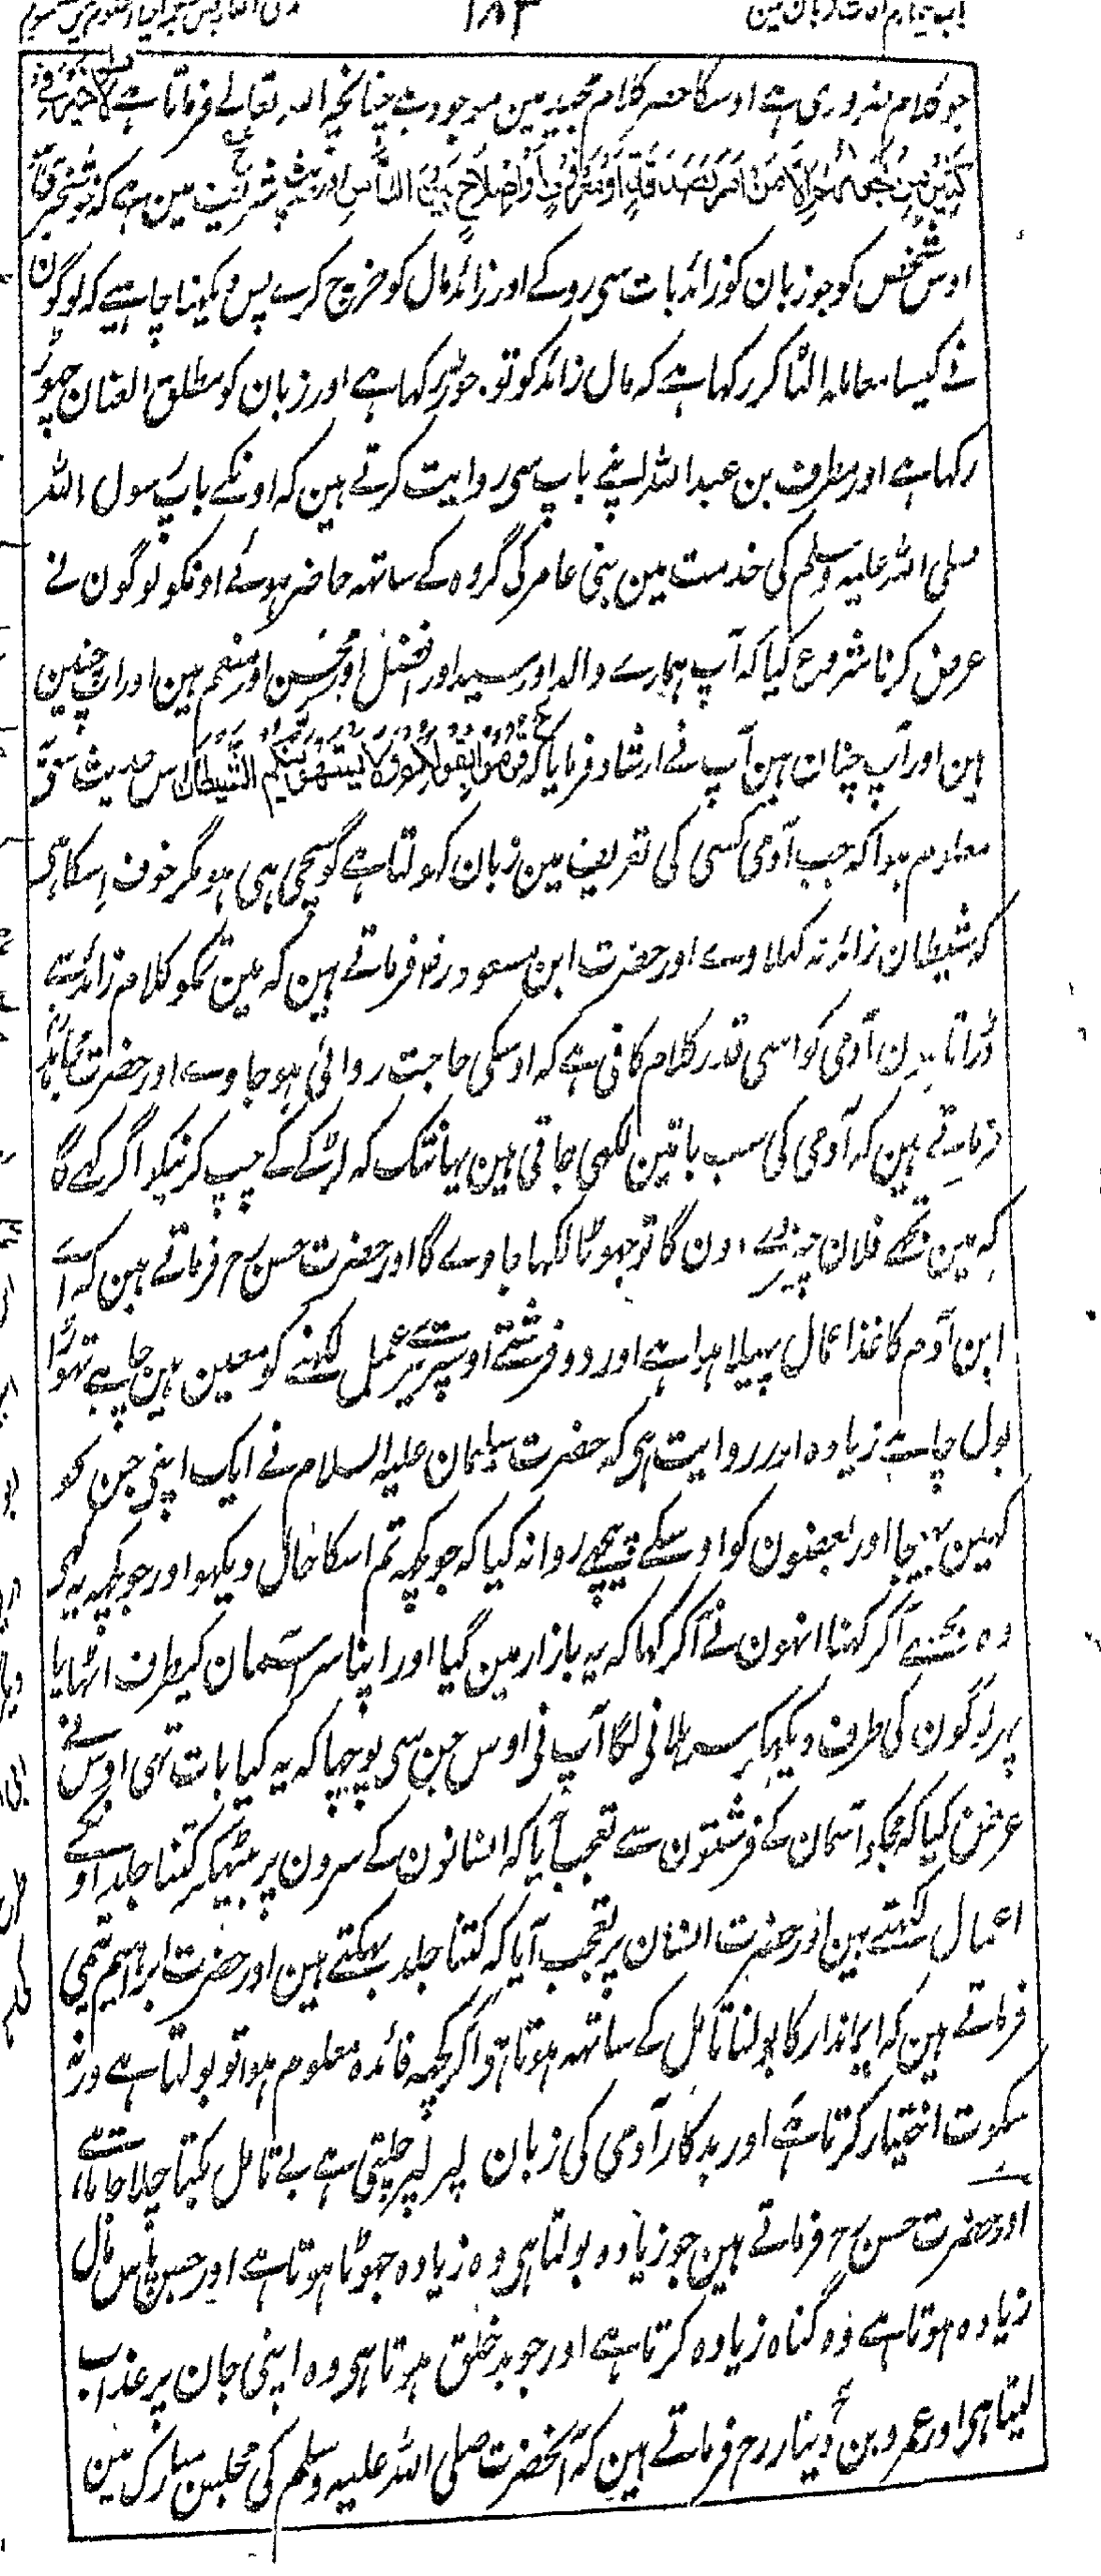 ۱۸۳
جو کلام ضروری ہے اوسکا حصر کلام مجید مین موجود ہے چنانچہ اللہ تعالے فرماتا ہے لاخیر فی
کثیر من نجواہم الا من امر بصدقۃ او معروف او اصلاح بین الناس اور حدیث شریف مین ہے کہ خوشخبری
اوس شخص کو جو زبان کو زائد بات سی روکے اور زائد مال کو خرچ کرے پس دیکہنا چاہیے کہ لوگون
نے کیسا معاملہ الٹا کر رکہا ہے کہ مال زائد کو تو جوڑ رکہا ہے اور زبان کو مطلق العنان چہوڑ
رکہا ہے اور مطرف بن عبد اللہ اپنے باپ سی روایت کرتے ہین کہ اونکے باپ رسول اللہ
صلی اللہ علیہ وسلم کی خدمت مین بنی عامر کی گروہ کے ساتہہ حاضر ہوئے اونکو لوگون نے
عرض کرنا شروع کیا کہ آپ ہمارے والد اور سید اور افضل اور محسن اور منعم ہین اور آپ چنین
ہین اور آپ چنان ہین آپ نے ارشاد فرمایا کہ قولوا بقولکم ولا یستہوینکم الشیطان اس حدیث سے
معلوم ہوا کہ جب آدمی کسی کی تعریف مین زبان کہولتا ہے گو سچی ہی ہو مگر خوف اسکا ہی
کہ شیطان زائد نہ کہلاوے اور حضرت ابن مسعود رض فرماتے ہین کہ مین تمکو کلام زائد سے
ڈراتا ہون آدمی کو اسی قدر کلام کافی ہے کہ اوسکی حاجت روائی ہو جاوے اور حضرت مجاہد
فرماتے ہین کہ آدمی کی سب باتین لکہی جاتی ہین یہانتک کہ لڑکے کے چپ کرنیکو اگر کہے گا
کہ مین تجہے فلان چیز لے دون گا تو جہوٹا لکہا جاوے گا اور حضرت حسن رح فرماتے ہین کہ اے
ابن آدم کاغذ اعمال پہیلا ہوا ہے اور دو فرشتے اوسپر تیرے عمل لکہنے کو معین ہین چاہے تہوڑا
بول چاہے زیادہ اور روایت ہی کہ حضرت سلیمان علیہ السلام نے ایک اپنی جن کو
کہین بہیجا اور بعضون کو اوسکے پیچہے روانہ کیا کہ جو کچہہ تم اسکا حال دیکہو اور جو کچہہ یہ کہی
وہ مجہسے آکر کہنا انہون نے آکر کہا کہ یہ بازار مین گیا اور اپنا سر آسمان کیطرف اٹہایا
پہر لوگون کی طرف دیکہکر سر ہلانی لگا آپ نی اوس جن سی پوچہا کہ یہ کیا بات تہی اوس نے
عرض کیا کہ مجکو آسمان کے فرشتون سے تعجب آیا کہ انسانون کے سرون پر بیٹہکر کتنا جلد اونکے
اعمال لکہتے ہین اور حضرت انسان پر تعجب آیا کہ کتنا جلد بہکتے ہین اور حضرت ابراہیم تیمی
فرماتے ہین کہ ایماندار کا بولنا تامل کے ساتہہ ہوتا ہے اگر کچہہ فائدہ معلوم ہوا تو بولتا ہے ورنہ
سکوت اختیار کرتا ہے اور بدکار آدمی کی زبان لپر لپر چلتی ہے بے تامل بکتا چلا جاتا ہے
اور حضرت حسن رح فرماتے ہین جو زیادہ بولتا ہی وہ زیادہ جہوٹا ہوتا ہے اور جس پاس مال
زیادہ ہوتا ہے وہ گناہ زیادہ کرتا ہے اور جو بدخلق ہوتا ہی وہ اپنی جان پر عذاب
لیتا ہی اور عمرو بن دینار رح فرماتے ہین کہ آنحضرت صلی اللہ علیہ وسلم کی مجلس مبارک مین